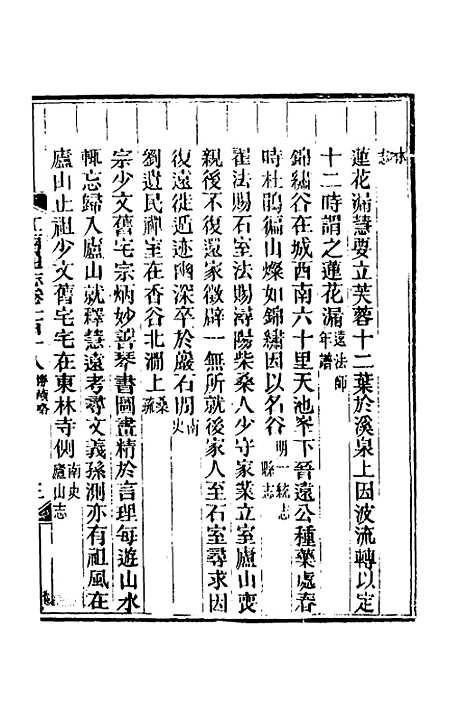 林志
蓮花漏慧要立芙蓉十二葉於溪泉上因波流轉以定
十二時謂之蓮花漏遠法師年譜
錦繡谷在城西南六十里天池峯下晉遠公種藥處春
時杜鵑徧山燦如錦繡因以名谷明一統志縣志
翟法賜石室法賜潯陽柴桑人少守家業立室廬山喪
親後不復還家徵辟一無就後家人至石室尋求因
復遠徙遁迹幽深卒於巖石間南史
劉遺民禪室在香谷北澗上桑疏
宗少文舊宅宗炳妙善琴書圖畫精於言理每遊山水
輒忘歸入廬山就釋慧遠考尋文義孫測亦有祖風在
廬山止祖少文舊宅宅在東林寺側南史廬山志